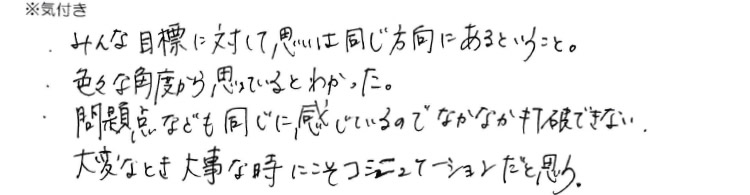 ※気付き
・みんな目標に対して思いは同じ方向にあるということ。
・色々な角度から思っているとわかった。
・問題点なども同じに感じているのでなかなか打破できない。
大変なとき大事な時にこそコミュニケーションだと思う。